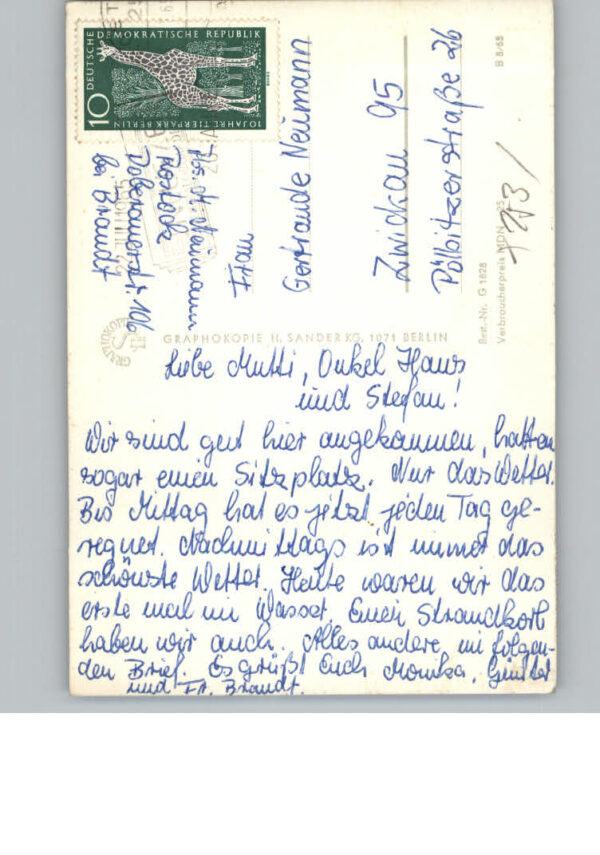 DEUTSCHE DEMOKRATISCHE REPUBLIK
10
10 JAHRE TIERPARK BERLIN
Abs. M. Neumann
Rostock
Doberanerstr. 106
bei Brandt
Frau
Gertraude Neumann
Zwickau 95
Pölbitzerstraße 26
B 8/65
Best.-Nr. G 1828
Verbraucherpreis MDN
GRAPHOKOPIE H. SANDER KG, 1071 BERLIN
Liebe Mutti, Onkel Hans
und Stefan!
Wir sind gut hier angekommen, hatten
sogar einen Sitzplatz. Nur das Wetter.
Bis Mittag hat es jetzt jeden Tag ge-
regnet. Nachmittags ist immer das
schönste Wetter. Heute waren wir das
erste mal im Wasser. Einen Strandkorb
haben wir auch. Alles andere im folgen-
den Brief. Es grüßt Euch Monika, Günter
und Fr. Brandt.